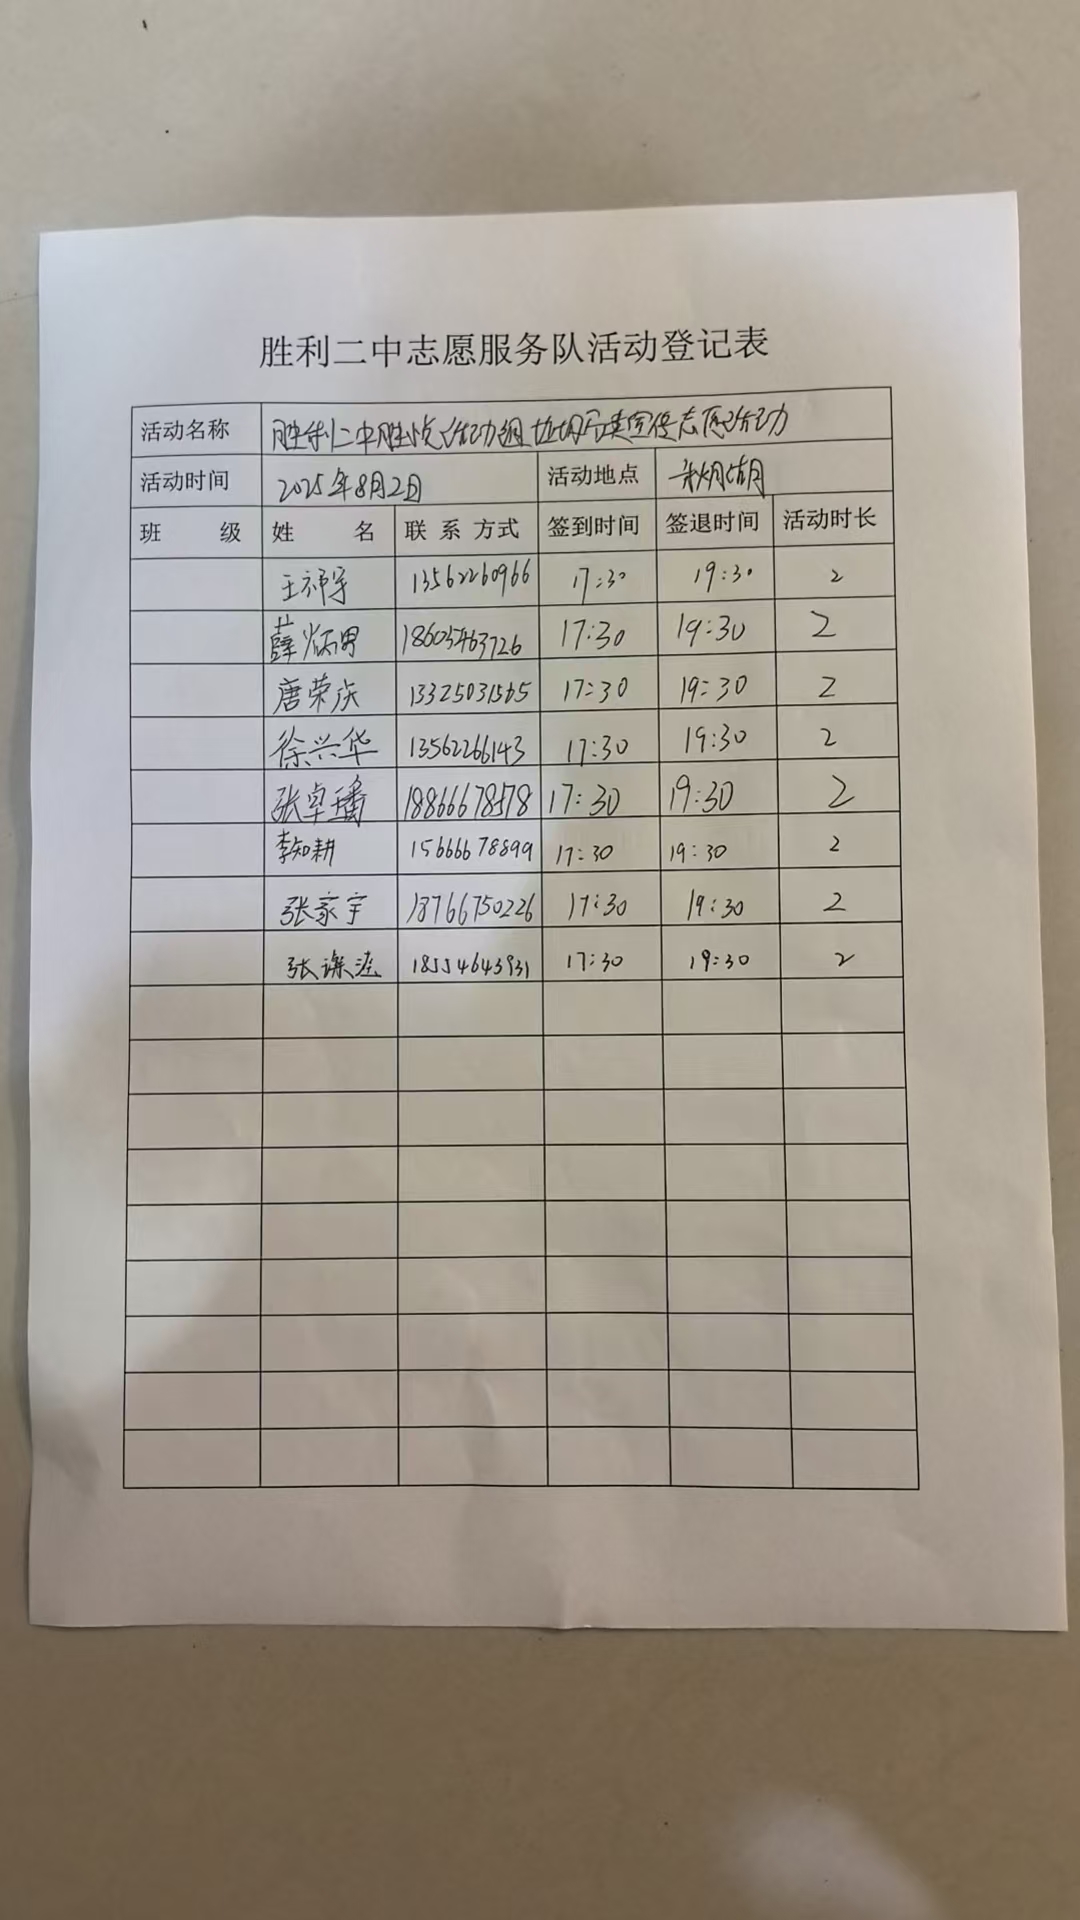 胜利二中志愿服务队活动登记表
活动名称 胜利二中胜悦活动组垃圾分类宣传志愿活动
活动时间 2025年8月2日 活动地点 明湖
班 级 姓 名 联 系 方式 签到时间 签退时间 活动时长
王祁宇 13562260966 17:30 19:30 2
薛炳男 18605463726 17:30 19:30 2
唐荣庆 13325031565 17:30 19:30 2
徐兴华 13562266143 17:30 19:30 2
张卓璠 18866678578 17:30 19:30 2
李知耕 15666678899 17:30 19:30 2
张家宇 18766750226 17:30 19:30 2
张 18554643931 17:30 19:30 2